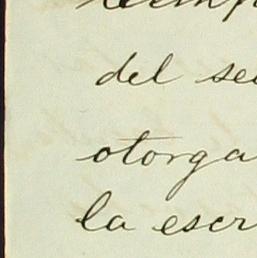 del se
otorga
la escr